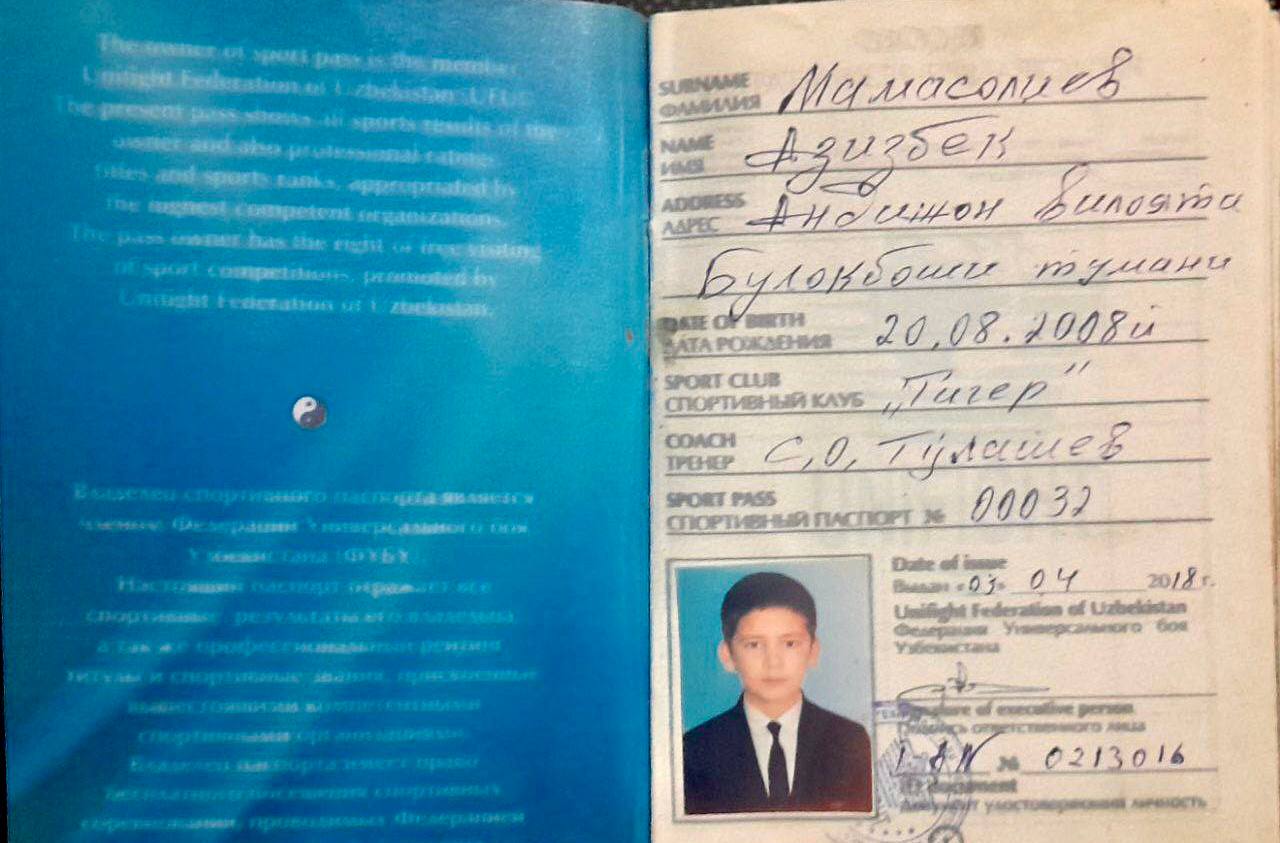 The owner of sport pass is the member
Unifight Federation of Uzbekistan (UFU).
The present pass shows all sports results of the
owner and also professional ratings,
titles and sports ranks, appropriated by
the highest competent organizations.
The pass owner has the right of free visiting
of sport competitions, promoted by
Unifight Federation of Uzbekistan.
Владелец спортивного паспорта является
членом Федерации Универсального боя
Узбекистана (ФУБУ).
Настоящий паспорт отражает все
спортивные результаты его владельца
а так же профессиональные рейтинги
титулы и спортивные звания, присвоенные
вышестоящими компетентными
спортивными организациями.
Владелец паспорта имеет право
бесплатного посещения спортивных
соревнований, проводимых Федерацией
SURNAME Мамасолиев
ФАМИЛИЯ
NAME Азизбек
ИМЯ
ADDRESS Андижон вилояти
АДРЕС
Булокбоши тумани
DATE OF BIRTH 20.08.2008й
ДАТА РОЖДЕНИЯ
SPORT CLUB „Тигер"
СПОРТИВНЫЙ КЛУБ
COACH С,О, Тулашев
ТРЕНЕР
SPORT PASS 00032
СПОРТИВНЫЙ ПАСПОРТ №
Date of issue
Выдан «03» 04 2018 г.
Unifight Federation of Uzbekistan
Федерация Универсального боя
Узбекистана
Signature of executive person
Подпись ответственного лица
I-AN № 0213016
ID document
Документ удостоверяющий личность